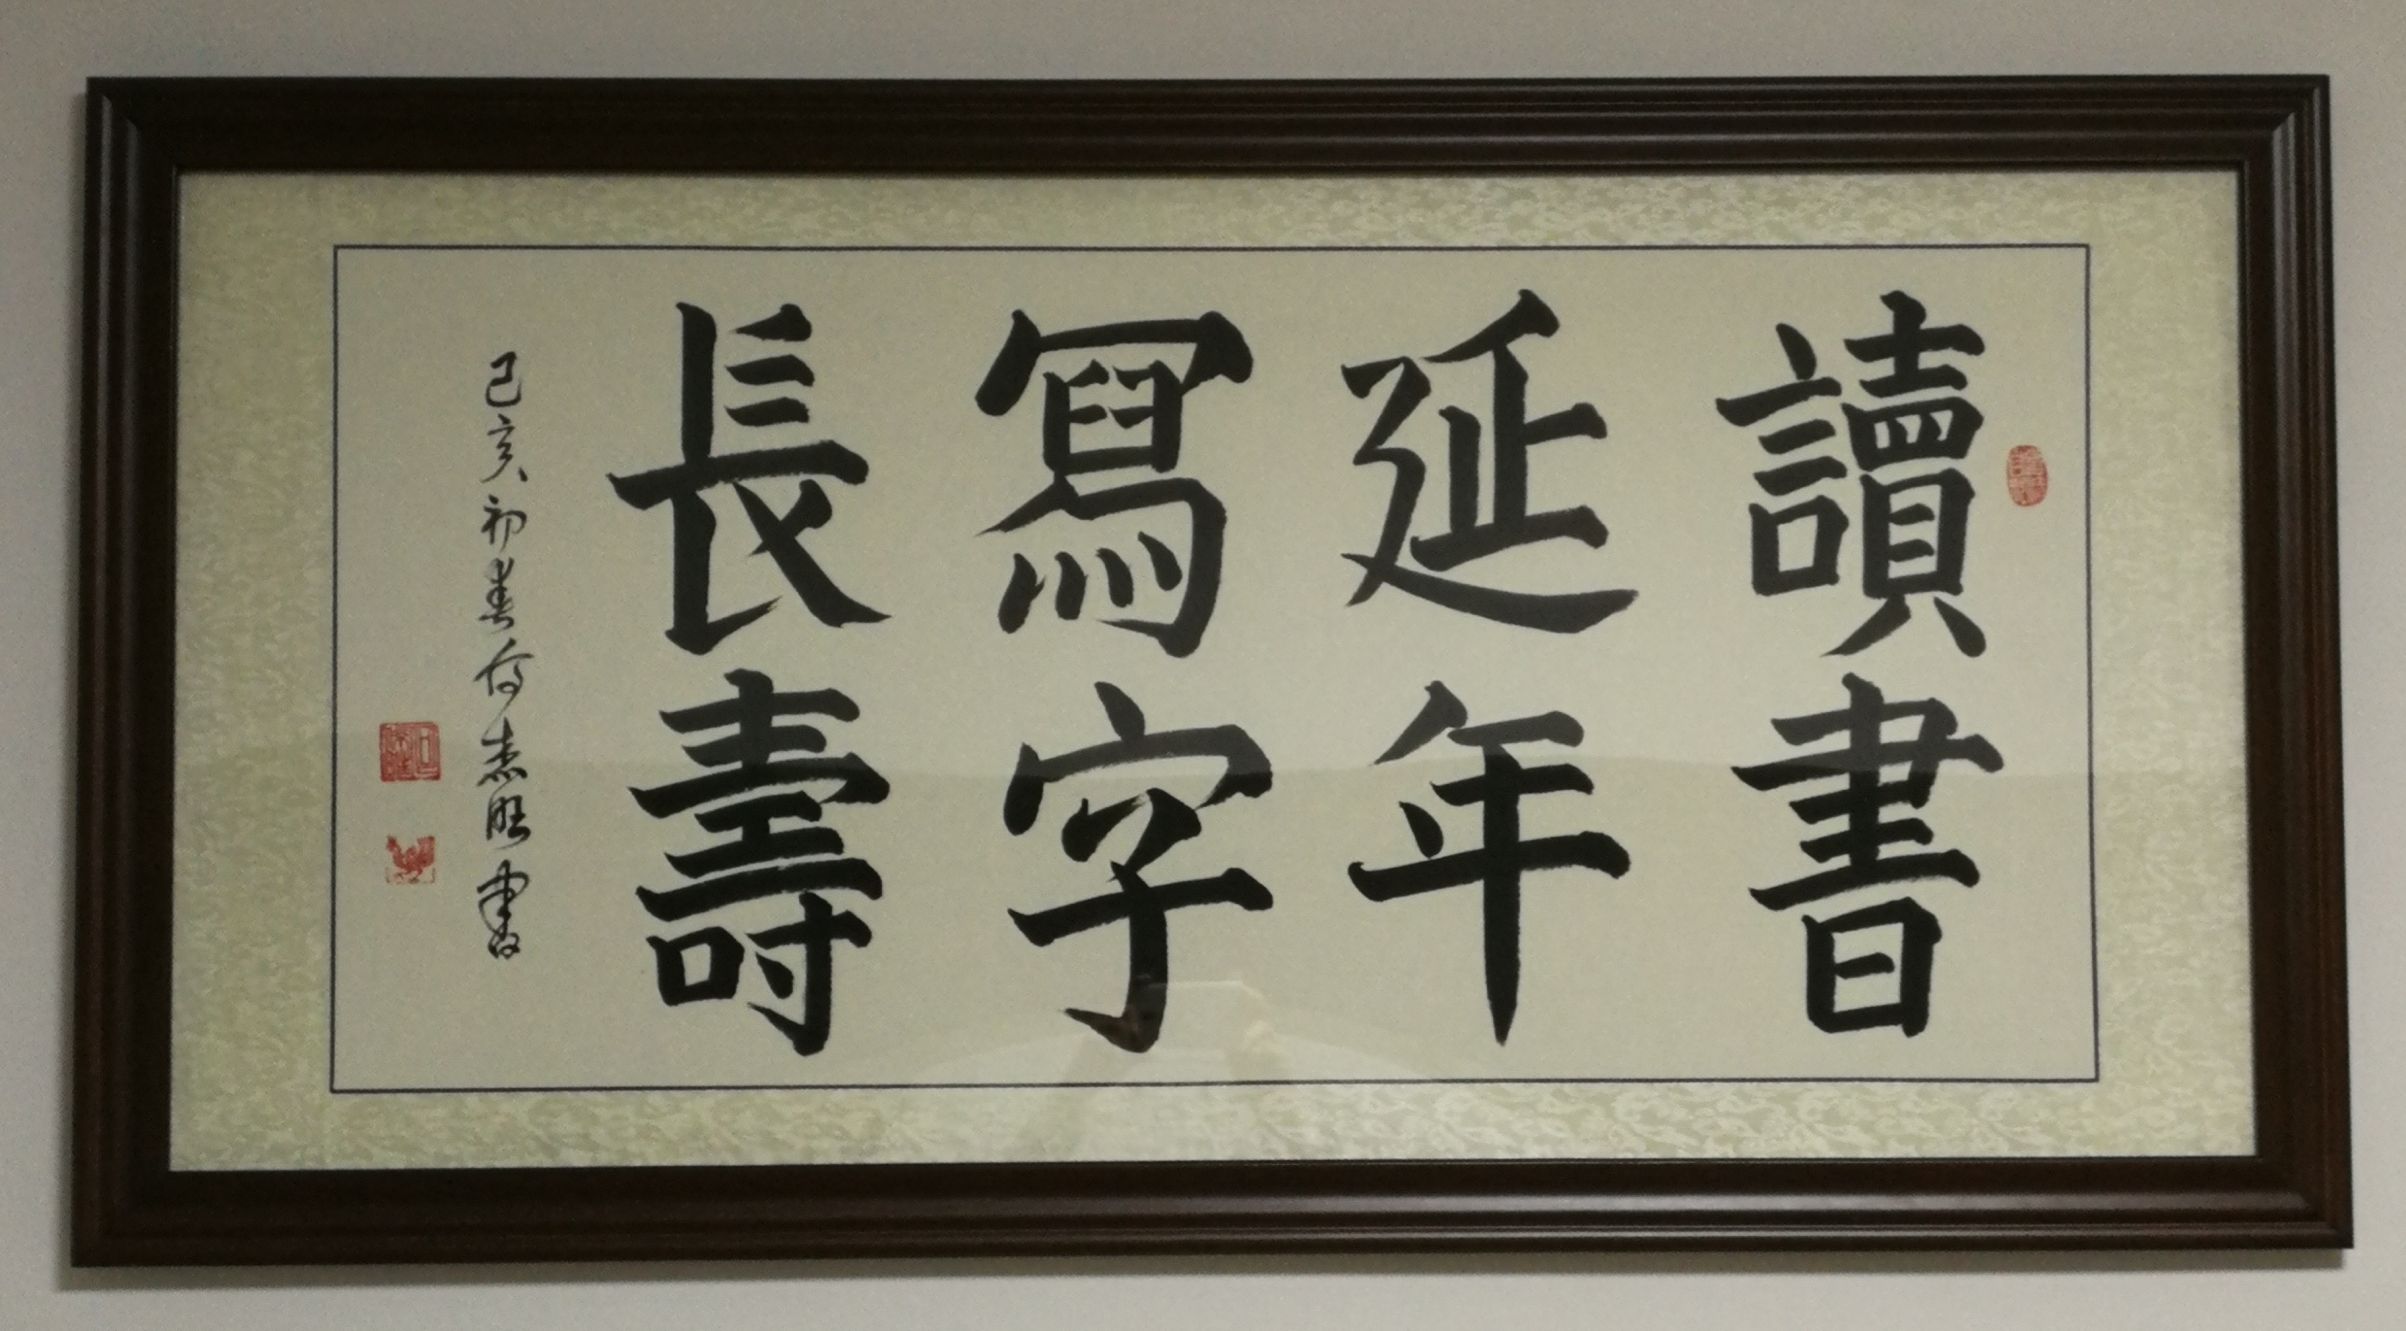 讀書
延年
寫字
長壽
己亥初春何志旺書